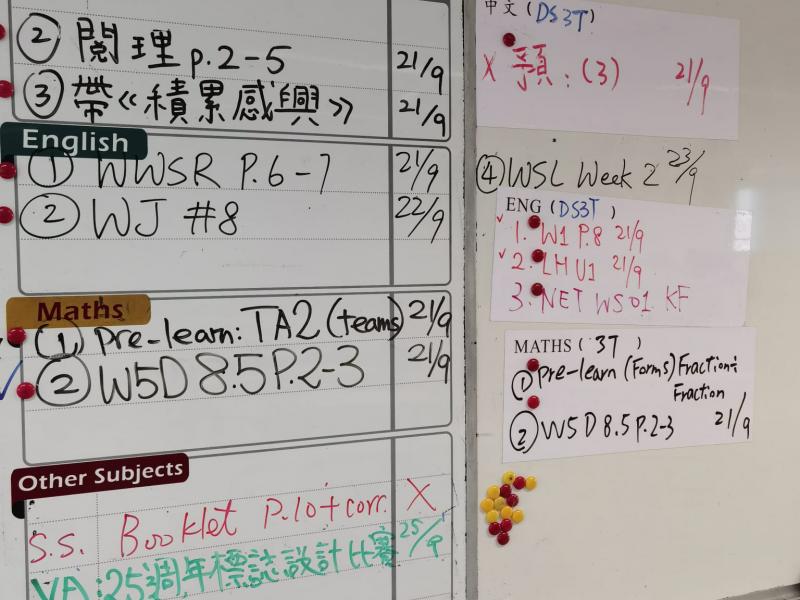 ② 閱理 p.2-5 21/9
③ 帶《積累感興》 21/9
English
① WWSR P.6-7 21/9
② WJ #8 22/9
Maths
(1) Pre-learn: TA2 (teams) 21/9
② W5D 8.5 P.2-3 21/9
Other Subjects
S.S. Booklet P.10+corr. X
VA:25週年標誌設計比賽 25/9
中文 (DS3T)
X :(3) 21/9
④ WSL Week 2 23/9
ENG (DS3T )
1. W1 P.8 21/9
2. LM U1 21/9
3. NET WS01 KF
MATHS ( 3T )
① Pre-learn (Forms) Fraction÷
Fraction
② W5D 8.5 P.2-3 21/9